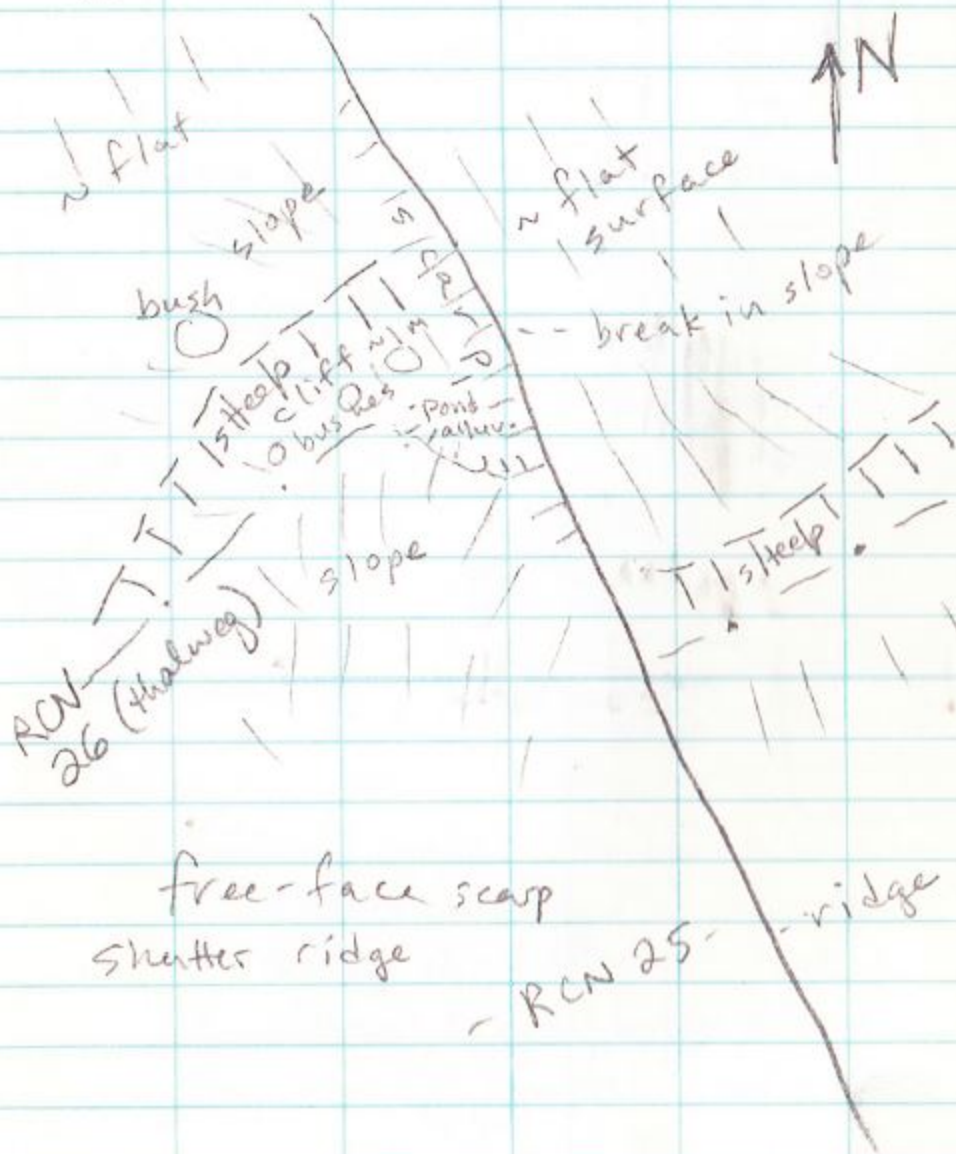 N
~ flat
~ flat
surface
slope
scarp
bush
break in slope
steep
cliff ~1m
bushes
pond
alluv.
steep
slope
RCN
26 (thalweg)
free-face scarp
shutter ridge
RCN 25
ridge